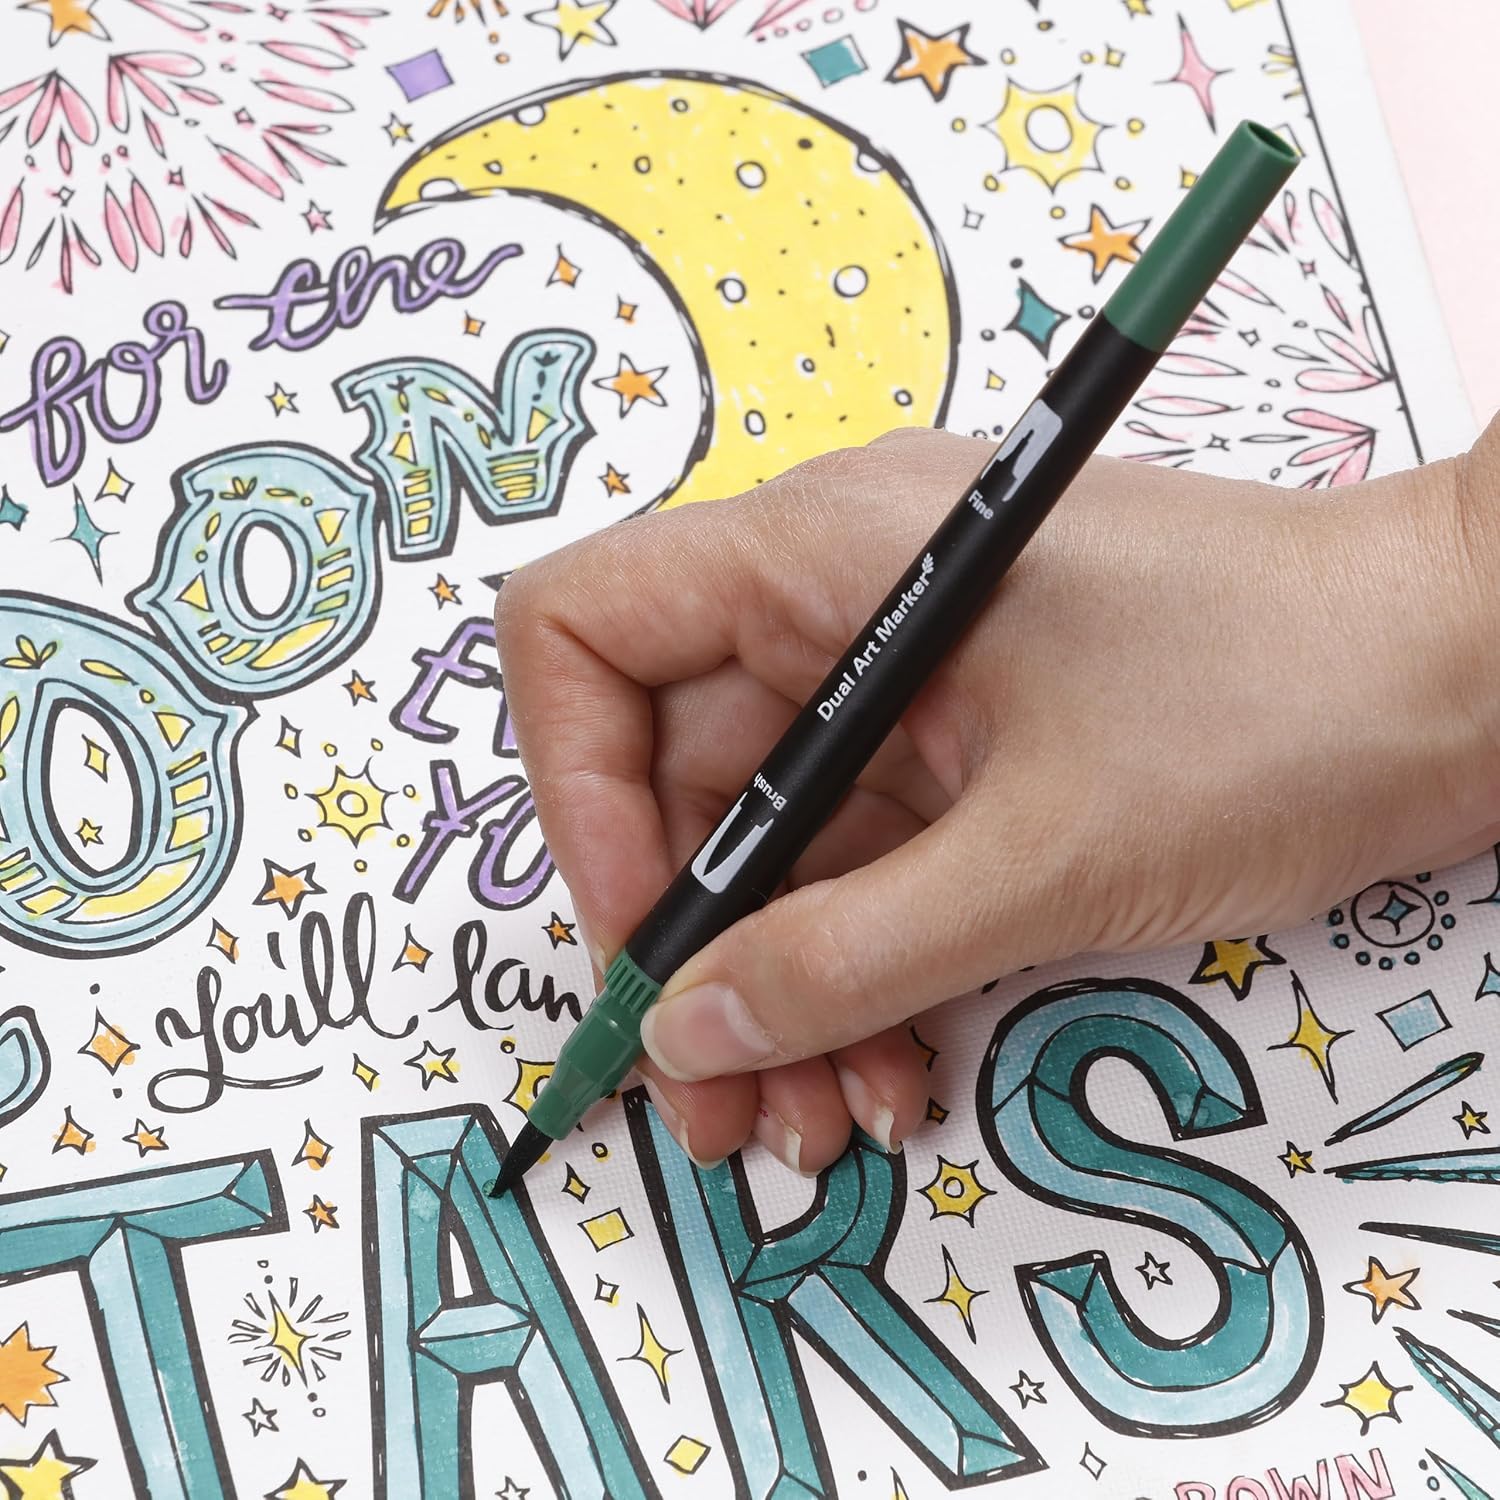 for the
OON
you'll lan
TARS
Fine
Dual Art Marker
Brush
DOWN